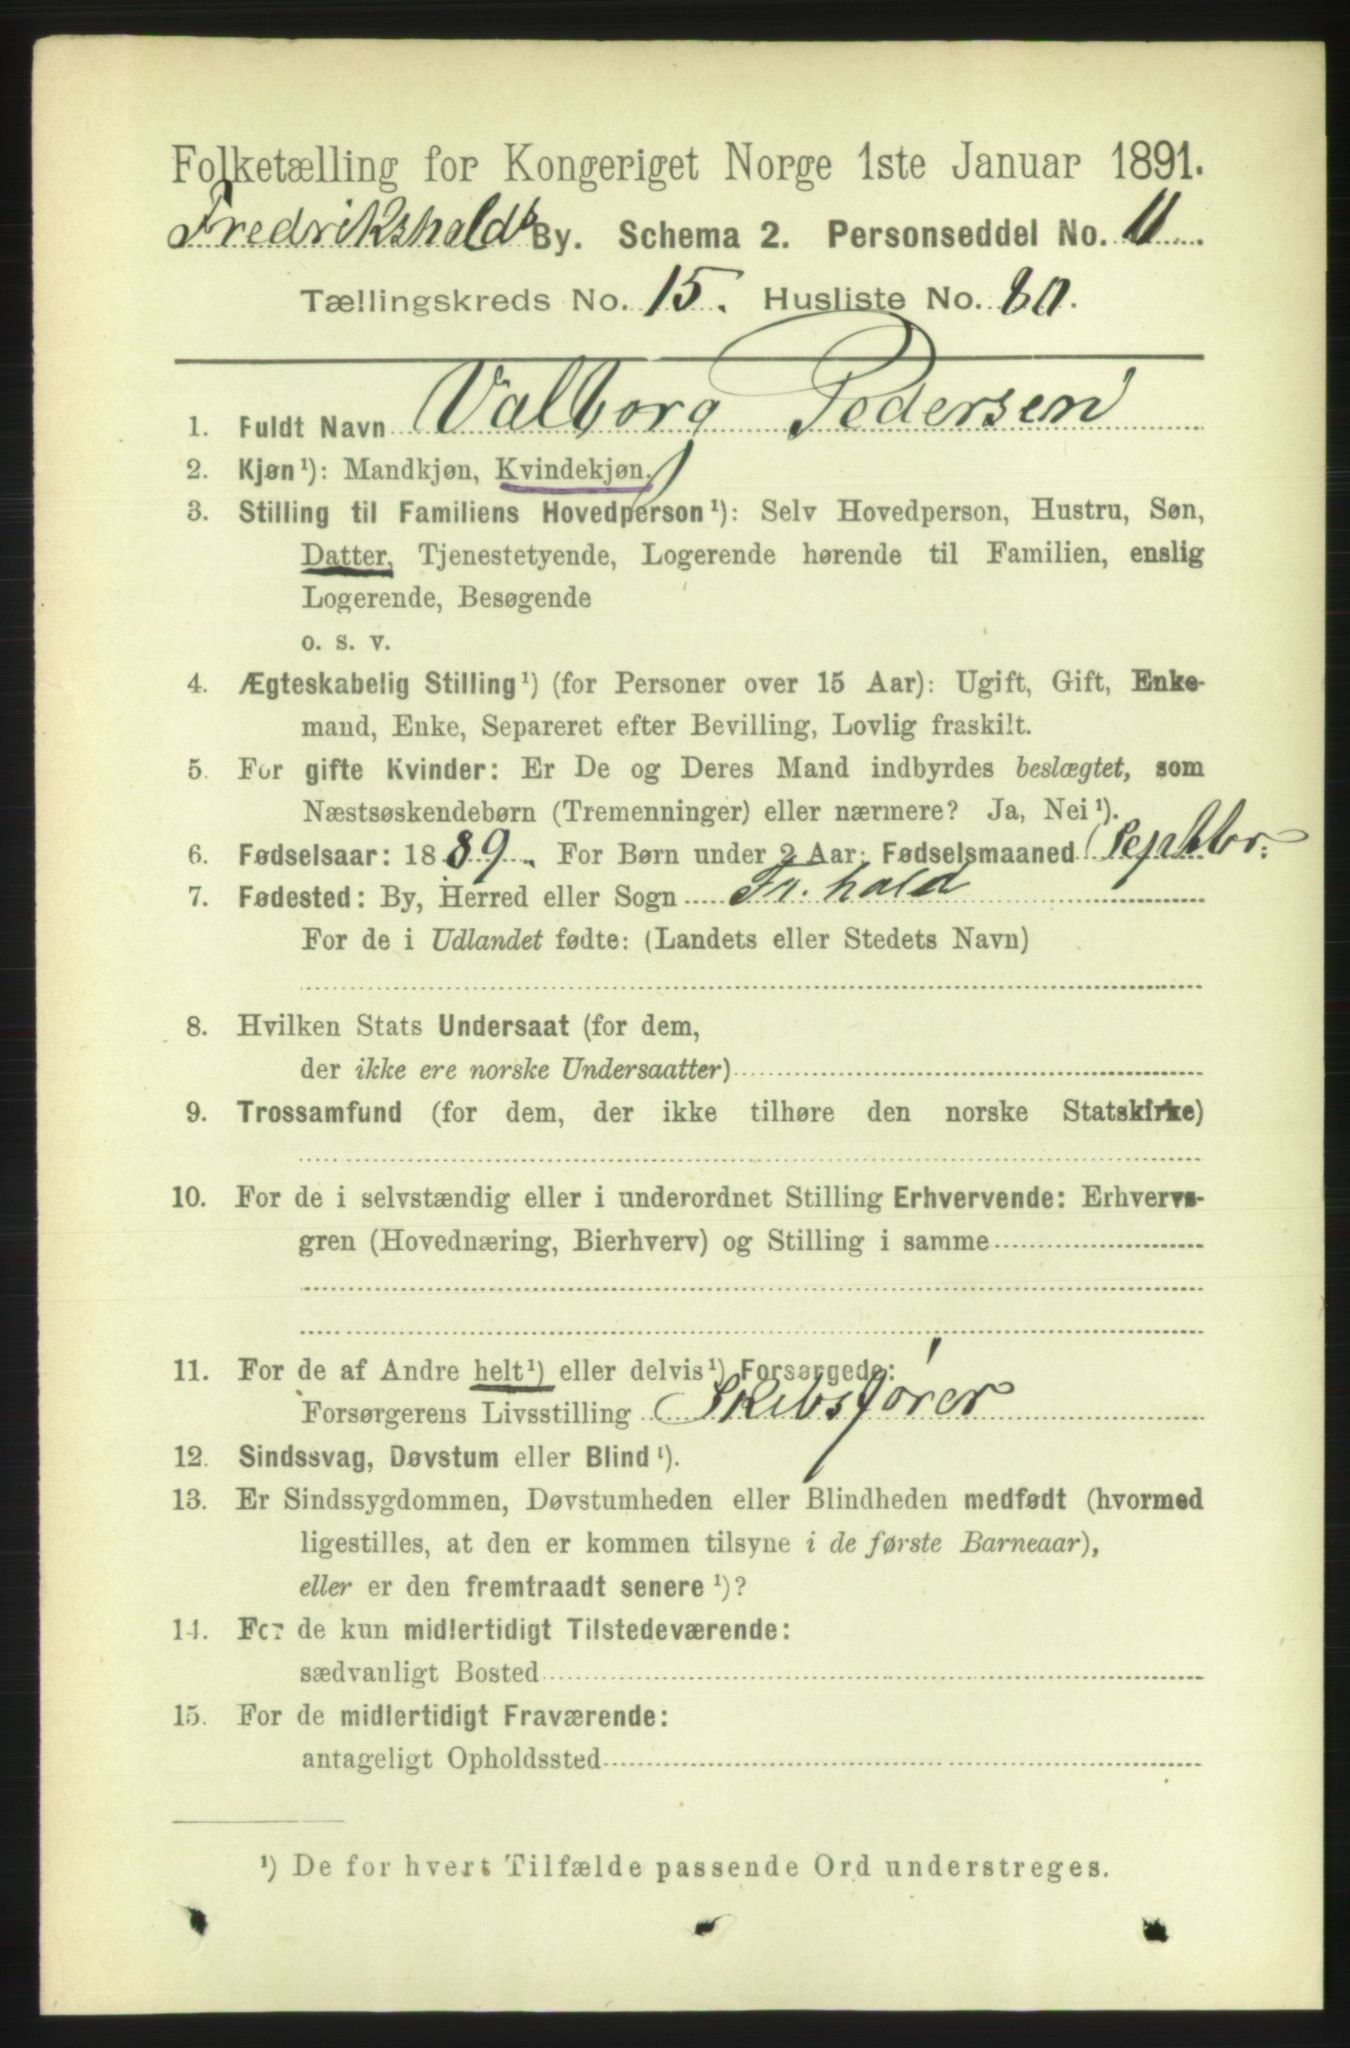 Folketælling for Kongeriget Norge 1ste Januar 1891.
Fredrikshalds By. Schema 2. Personseddel No. 11
Tællingskreds No. 15. Husliste No. 80.
1. Fuldt Navn Valborg Pedersen
2. Kjøn¹): Mandkjøn, Kvindekjøn.
3. Stilling til Familiens Hovedperson¹): Selv Hovedperson, Hustru, Søn,
Datter, Tjenestetyende, Logerende hørende til Familien, enslig
Logerende, Besøgende
o. s. v.
4. Ægteskabelig Stilling¹) (for Personer over 15 Aar): Ugift, Gift, Enke-
mand, Enke, Separeret efter Bevilling, Lovlig fraskilt.
5. For gifte Kvinder: Er De og Deres Mand indbyrdes beslægtet, som
Næstsøskendebørn (Tremenninger) eller nærmere? Ja, Nei¹).
6. Fødselsaar: 1889. For Børn under 2 Aar: Fødselsmaaned Septbr.
7. Fødested: By, Herred eller Sogn Fr. hald
For de i Udlandet fødte: (Landets eller Stedets Navn)
8. Hvilken Stats Undersaat (for dem,
der ikke ere norske Undersaatter)
9. Trossamfund (for dem, der ikke tilhøre den norske Statskirke)
10. For de i selvstændig eller i underordnet Stilling Erhvervende: Erhvervs-
gren (Hovednæring, Bierhverv) og Stilling i samme
11. For de af Andre helt¹) eller delvis¹) Forsørgede:
Forsørgerens Livsstilling Skibsfører
12. Sindssvag, Døvstum eller Blind¹).
13. Er Sindssygdommen, Døvstumheden eller Blindheden medfødt (hvormed
ligestilles, at den er kommen tilsyne i de første Barneaar),
eller er den fremtraadt senere¹)?
14. For de kun midlertidigt Tilstedeværende:
sædvanligt Bosted
15. For de midlertidigt Fraværende:
antageligt Opholdssted
¹) De for hvert Tilfælde passende Ord understreges.